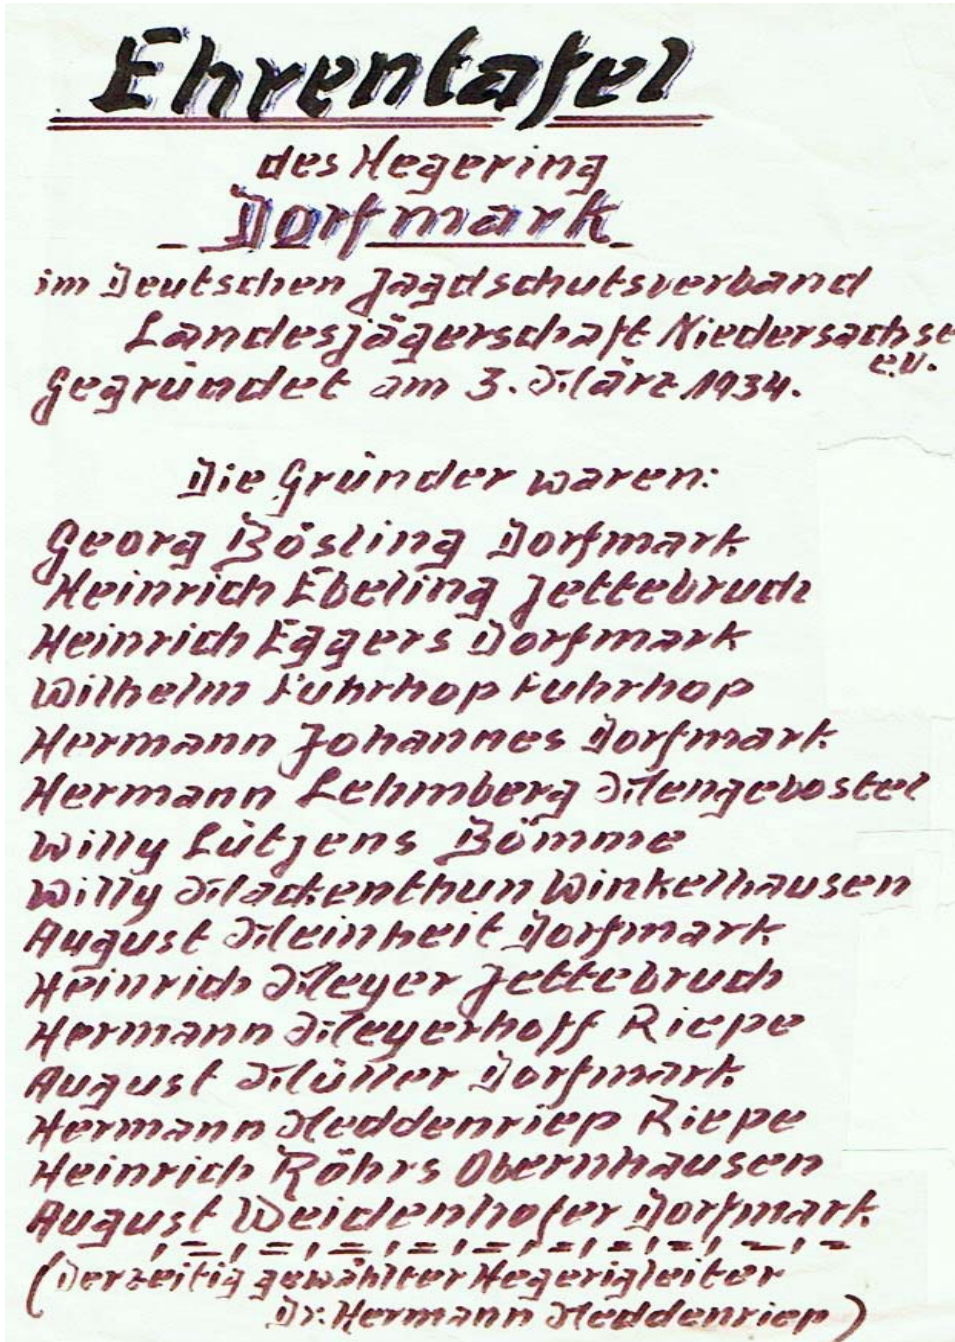 Ehrentafel
des Hegering
Dorfmark
im Deutschen Jagdschutsverband
Landesjägerschaft Niedersachse
e.V.
Gegründet am 3. März 1934.
Die Gründer waren:
Georg Bösling Dorfmark
Heinrich Ebeling Jettebruch
Heinrich Eggers Dorfmark
Wilhelm Fuhrhop Fuhrhop
Hermann Johannes Dorfmark
Hermann Lehmberg Mengebostel
Willy Lütjens Bömme
Willy Mackenthun Winkelhausen
August Meinheit Dorfmark
Heinrich Meyer Jettebruch
Hermann Meyerhoff Riepe
August Müller Dorfmark
Hermann Neddenriep Riepe
Heinrich Röhrs Obernhausen
August Weidenhofer Dorfmark
(Derzeitig gewählter Hegerigleiter
Dr. Hermann Neddenriep)